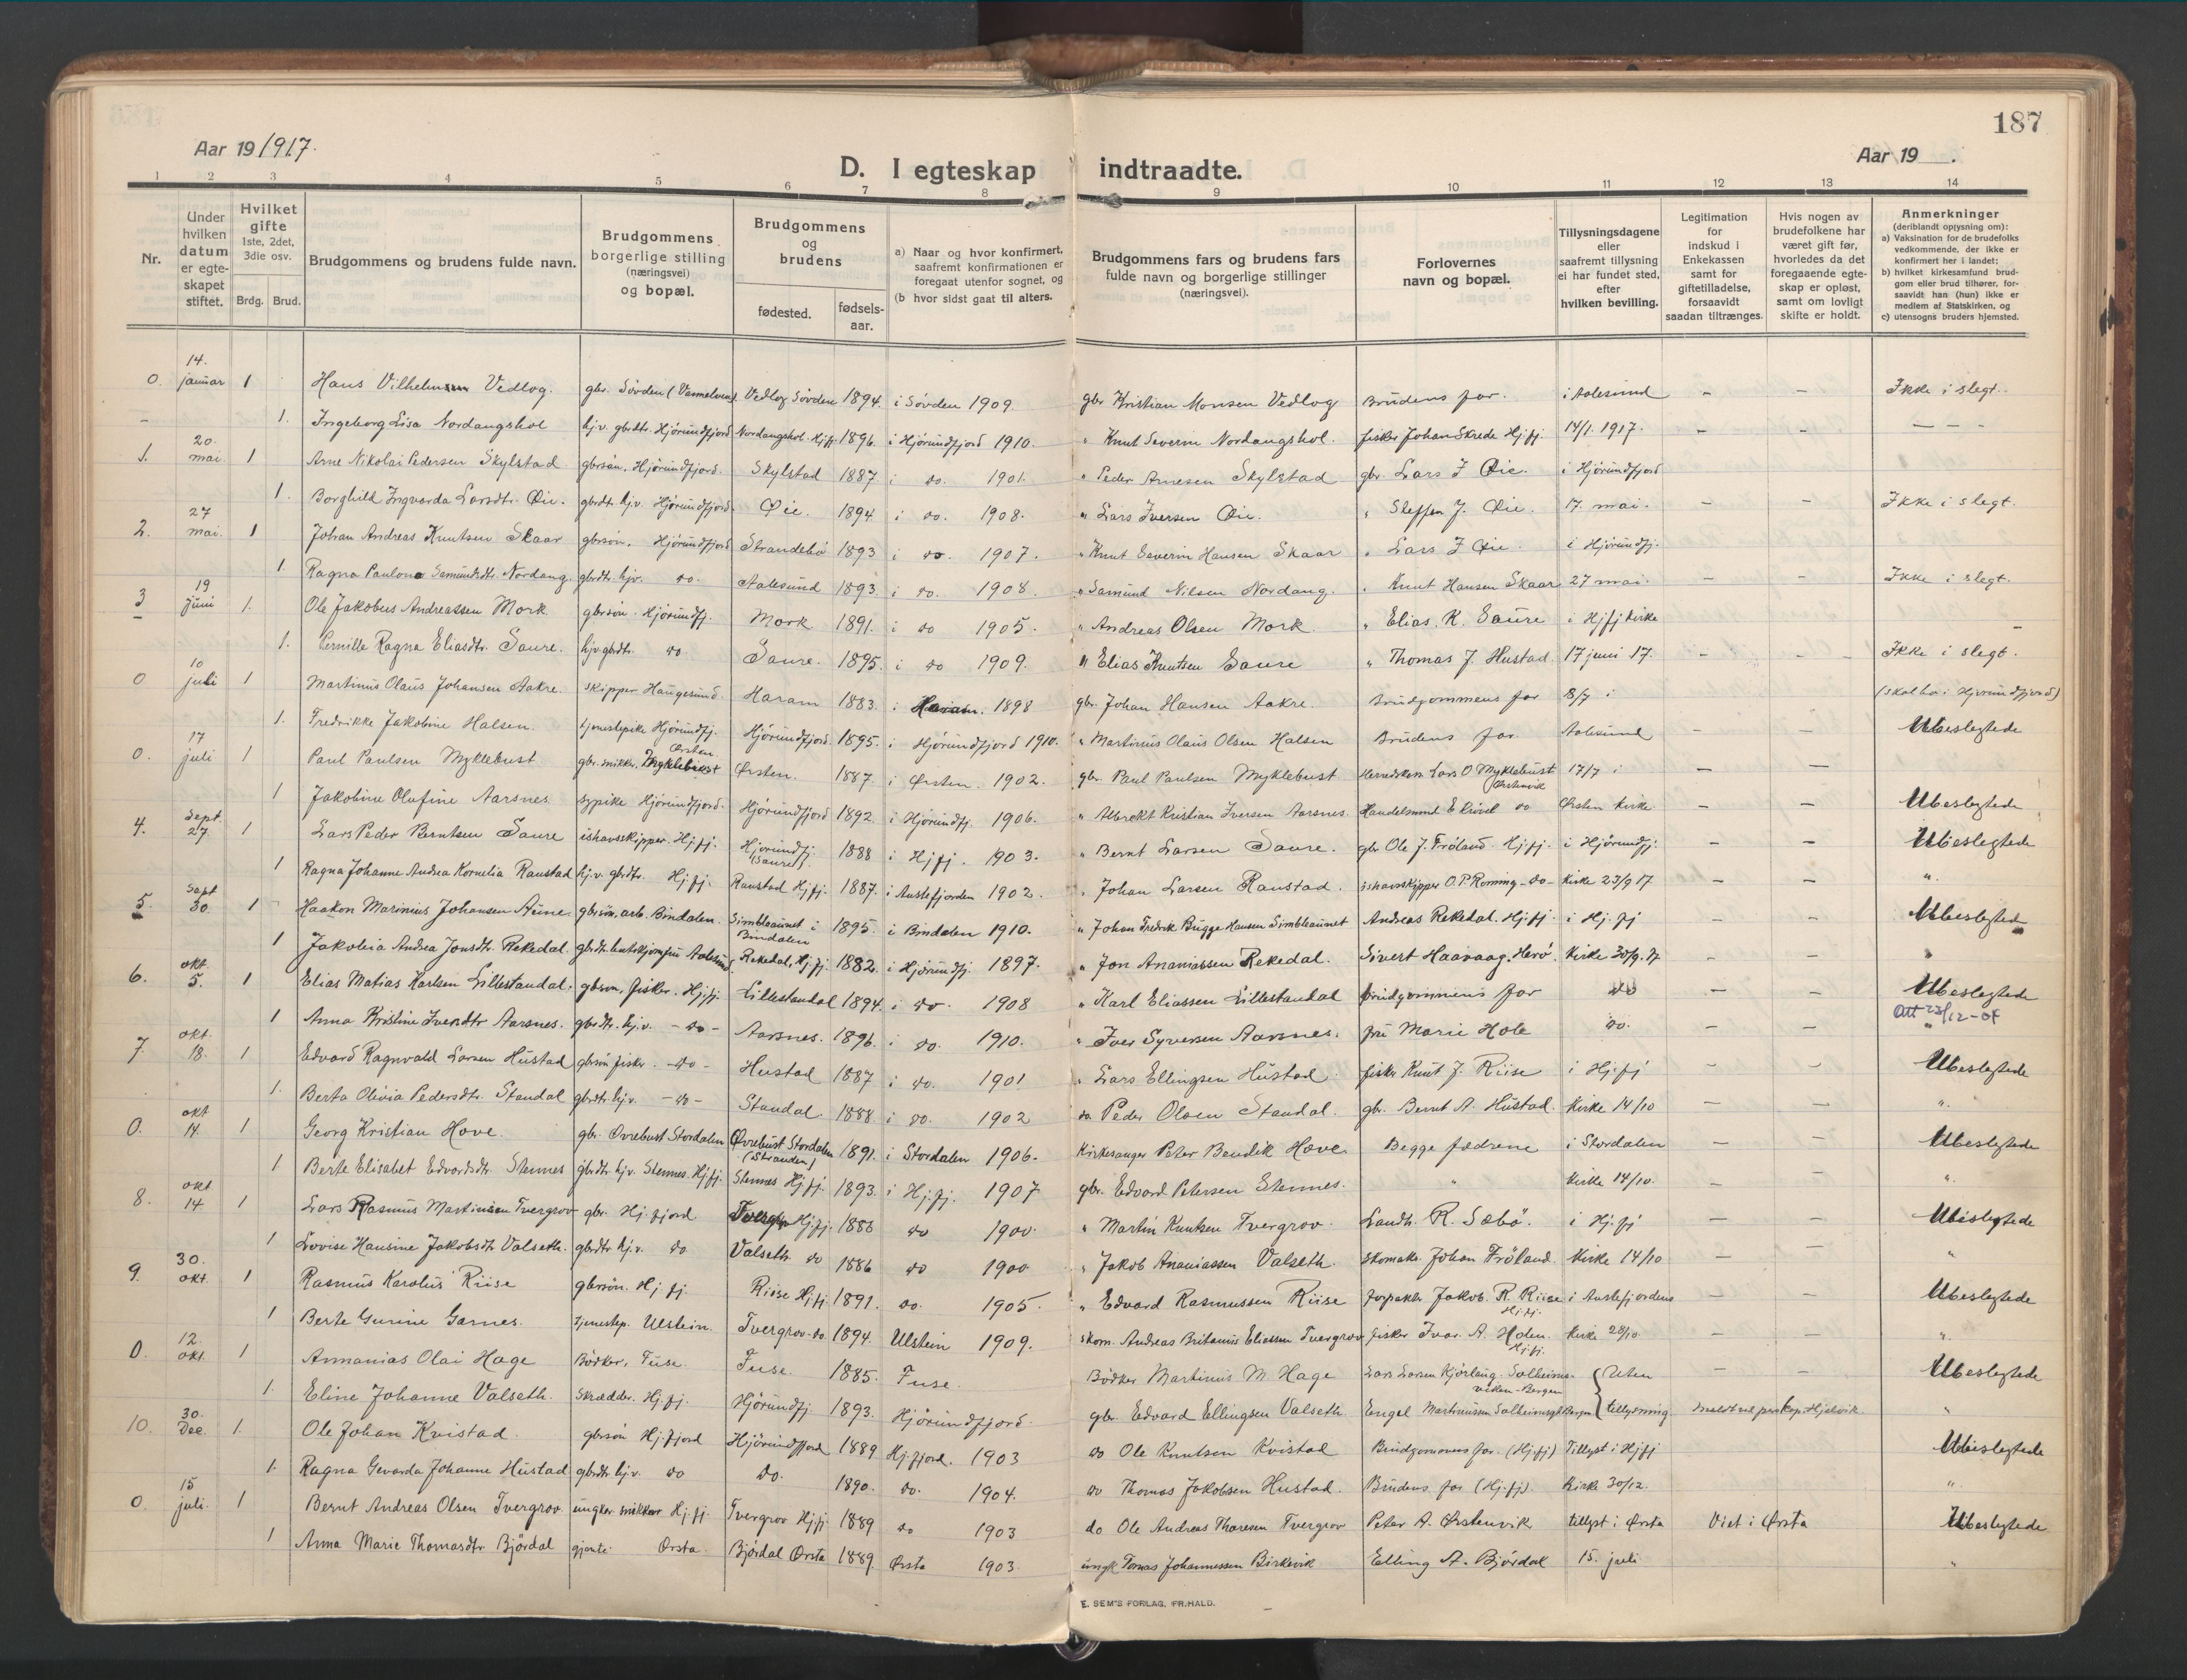 187
Aar 19/1917.
Aar 19 .
D. I egteskap indtraadte.
1 2 3 4 5 6 7 8 9 10 11 12 13 14
Nr.
Under hvilken datum er egte-skapet stiftet.
Hvilket gifte 1ste, 2det, 3die osv.
Brdg. Brud.
Brudgommens og brudens fulde navn.
Brudgommens borgerlige stilling (næringsvei) og bopæl.
Brudgommens og brudens
fødested. fødsels-aar.
a) Naar og hvor konfirmert, saafremt konfirmationen er foregaat utenfor sognet, og
(b hvor sidst gaat til alters.
Brudgommens fars og brudens fars fulde navn og borgerlige stillinger (næringsvei).
Forlovernes navn og bopæl.
Tillysningsdagene eller saafremt tillysning ei har fundet sted, efter hvilken bevilling.
Legitimation for indskud i Enkekassen samt for giftetilladelse, forsaavidt saadan tiltrænges.
Hvis nogen av brudefolkene har været gift før, hvorledes da det foregaaende egte-skap er opløst, samt om lovligt skifte er holdt.
Anmerkninger (deriblandt opjysning om):
a) Vaksination for de brudefolks vedkommende, der ikke er konfirmert her i landet;
b) hvilket kirkesamfund brud-gom eller brud tilhører, for-saavidt han (hun) ikke er medlem af Statskirken, og
c) utensogns bruders hjemsted.
0. 14. januar 1 Hans Vedlog. gbr. Søvden Vedlog Søvden 1894. i Søvden 1909. gbr Kristian Monsen Vedlog Brudens far. i Aalesund – – Ikke i slegt.
– 1. Ingeborg Lisa Nordangshol hj.v. gbrdtr. Hjørundfjord Nordangshol. Hj.fj. 1896. i Hjørundfjord 1910. " Knut Severin Nordangshol. fisker Johan Skrede Hj.fj. 14/1. 1917. – – – – –
1. 20. mai 1 Arne Nikolai Pedersen Skylstad gbrsøn. Hjørundfjord. Skylstad 1887. i do. 1901. " Peder Arnesen Skylstad gbr. Lars J Øie. i Hjørundfjord
1. Borghild Ingvarda Larsdtr. Øie. gbrdt. hj.v. Hjørundfjord. Øie. 1894 i do. 1908. " Lars Iversen Øie. " Steffen J. Øie. 17. mai. – – Ikke i slegt.
2. 27 mai. 1 Johan Andreas Knutsen Skaar gbrsøn. Hjørundfjord Strandebø 1893 i do. 1907. " Knut Severin Hansen Skaar " Lars J Øie. i Hjørundfj.
1. Ragna Paulona Samundsdtr. Nordang. gbrdtr. hjv. do. Aalesund 1893. i do. 1908. " Samund Nilsen Nordang. " Knut Hansen Skaar 27 mai. – – Ikke i slegt.
3 19 juni 1. Ole Jakobus Andreassen Mork gbrsøn. Hjørundfj. Mork 1891. i do 1905. " Andreas Olsen Mork " Elias. K. Saure i Hjfj kirke
1. Pernille Ragna Eliasdtr. Saure. hjv gbrdtr. do. Saure. 1895. i do 1909. " Elias Knutsen Saure " Thomas J. Hustad 17 juni 17. – – Ikke i slegt.
0 10 juli 1 Martinus Olaus Johansen Aakre. skipper Haugesund. Haram 1883. i Haram. 1898 gbr. Johan Hansen Aakre. Brudgommens far 8/7 i (skal bo i Hjørundfjord)
1. Fredrikke Jakobine Halsen. tjenestepike Hjørundfj. Hjørundfjord. 1895. i Hjørundfjord 1910. " Martinus Olaus Olsen Halsen Brudens far Aalesund – – Ubeslegtede
0. 17 juli 1 Paul Paulsen Myklebust gbr. snikker. Myklebust Ørsten Ørsten. 1887. i Ørsten. 1902. gbr. Paul Paulsen Myklebust Lars O Myklebust Ørstenvik 17/7 i – –
1 Jakobine Olufine Aarsnes sypike Hjørundfjord. Hjørundfjord 1892. i Hjørundfj. 1906. " Albrekt Kristian Iversen Aarsnes. Handelsmand do Ørsten kirke. – – Ubeslegtede
4. Sept. 27. 1 Lars Peder Berntsen Saure ishavsskipper. Hj.fj. Hjørundfj. (Saure) 1888 i Hj.fj. 1903. " Bernt Larsen Saure. gbr Ole J. Frøland Hj.fj. i Hjørundfj. – – Ubeslegtede
1 Ragna Johanne Andrea Kornelia Ranstad hj.v. gbrdtr. Hj.fj. Ranstad Hj.fj. 1887. i Austefjorden 1902. " Johan Larsen Ranstad. ishavsskipper O.P. Roming -do- Kirke 23/9 17 – – "
5. Sept 30. 1 Haakon Marinius Johansen Aune. gbrsøn, arb. Bindalen. Simbleaunet i Bindalen 1895. i Bindalen 1910. " Johan Fredrik Brigge Hansen Simbleaunet Andreas Rekedal. Hj.fj. i Hj.fj – – Ubeslegtede
1 Andrea Jonsdtr. Rekedal. Rekedal, Hj.fj. 1882. i Hjørundfj. 1897. " Jon Ananiassen Rekedal. Sivert Haavaag. Herø. Kirke 30/9. 17 – – "
6. okt. 5. 1 Elias Matias Karlsen Lillestandal. gbrsøn, fisker. Hj.fj. Lillestandal 1894. i do. 1908 " Karl Eliassen Lillestandal Brudgommens far do – – Ubeslegtede
Att 23/12-04
1 Anna Kristine Iversdtr Aarsnes. gbrdtr. hj.v. -do- Aarsnes. 1896. i do. 1910. " Iver Syversen Aarsnes. fru Marie Hole do. – – "
7 okt. 18. 1 Edvard Ragnvald Larsen Hustad gbrsøn fisker. -do- Hustad 1887 i do. 1901 " Lars Ellingsen Hustad fisker Knut J. Riise i Hj.fj – – Ubeslegtede
1. Berta Olivia Pedersdtr. Standal gbrdtr. hj.v. -do- Standal. 1888. i do. 1902 do Peder Olsen Standal. gbr. Bernt A. Hustad. Kirke 14/10 – – "
0. okt 14. 1 Georg Kristian Hove. gbr. Øvrebust Stordalen Øvrebust Stordalen (Stranden) 1891. i Stordalen 1906. Kirkesanger Peter Bendik Hove Begge fædrene i Stordalen – – Ubeslegtede
1. Berte Elisabet Edvardsdtr. Stennes gbrdtr. hj.v. Stennes. Hj.fj. Stennes Hj.fj. 1893. i Hj.fj. 1907 gbr. Edvard Petersen Stennes. " Kirke 14/10. – – "
8. okt 14 1 Lars Rasmus Martinsen Tvergrov gbr. Hj.fjord Tvergrov Hj.fj. 1883 do 1900 " Martin Knutsen Tvergrov. Landh. R. Sæbø. i Hj.fj – – Ubeslegtede
1 Lovise Hansine Jakobsdtr Valseth. gbrdtr hj.v. do Valseth do 1886 do 1900 " Jakob Ananiassen Valseth. skomaker Johan Frøland. Kirke 14/10 – – "
9. 30. okt. 1 Rasmus Karolus Riise gbrsøn. Hj.fj. Riise Hj.fj 1891. do. 1905. " Edvard Rasmussen Riise Jakob. R. Riise Hj.fj. i Austefjordens – – Ubeslegtede
1 Berte Gurine Garnes. tjenestep. Ulstein. Tvergrov. do 1894. Ulstein 1909. skom. Andreas Britanus Eliassen Tvergrov fisker Ivar. A. Holen. Hj.fj. Kirke 28/10 – – "
0. 12. okt. 1 Annanias Olai Hage Bødker, Fuse. Fuse. 1885. Fuse. Bødker Martinus M Hage Lars Larsen Solheims-viken-Bergen Uten – – Ubeslegtede
1. Eline Johanne Valseth. Skrædder. Hj.fj. Hjørundfj 1893. Hjørundfjord. gbr. Edvard Ellingsen Valseth Engel Martinussen Bergen tillysning. "
10. 30. Dec. 1. Ole Johan Kvistad. gbrsøn Hj.fjord Hjørundfjord 1889 Hj.fjord. 1903 do Ole Knutsen Kvistad Brudgommens far. (Hj.fj) Tillyst i Hjfj Ubeslegtede
1. Ragna Gevarda Johanne Hustad gbrdtr. hj.v. do do. 1890. do. 1904. do Thomas Jakobsen Hustad. Brudens far (Hj.fj). Kirke 30/12. "
0. 15 juli. 1 Bernt Andreas Olsen Tvergrov ungkar snikker Hj.fj. Tvergrov Hj.fj. 1889 do 1903 do Ole Andreas Thoresen Tvergrov Peter A. Ørstenvik tillyst i Ørsta Viet i Ørsta Ubeslegtede
1 Anna Marie Thomasdtr. Bjørdal gjente. Ørsta. Bjørdal Ørsta 1889. Ørsta 1903. ungk Tomas Johannessen Birkevik Elling A. Bjørdal 15. juli "
E. SEM'S FORLAG, FR.HALD.